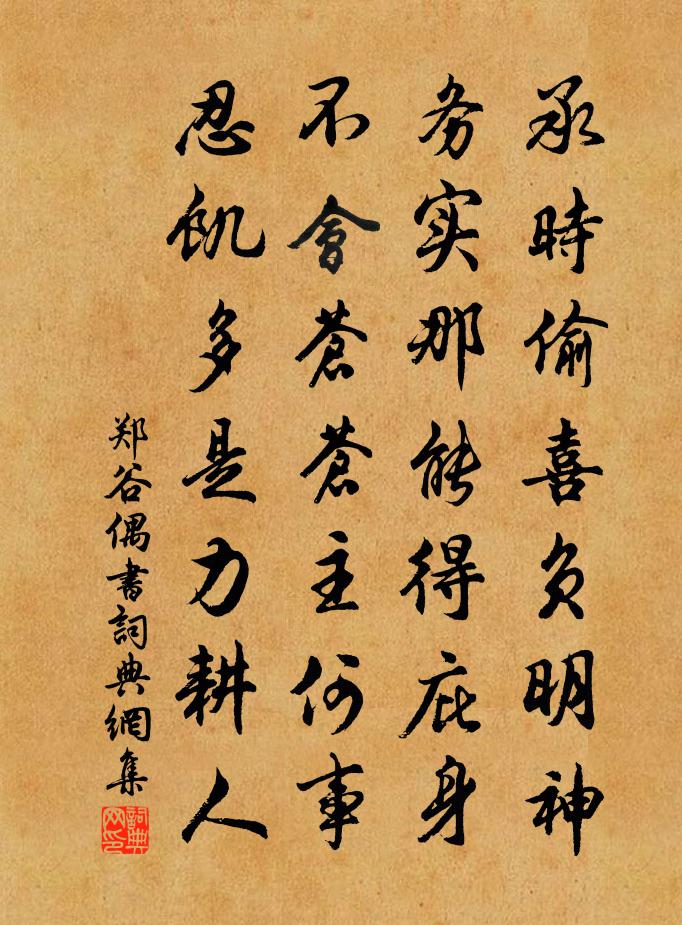 承時偷喜負明神
务实那能得庇身
不會蒼蒼主何事
忍飢多是力耕人
郑谷偶書詞典網集
詞典网印